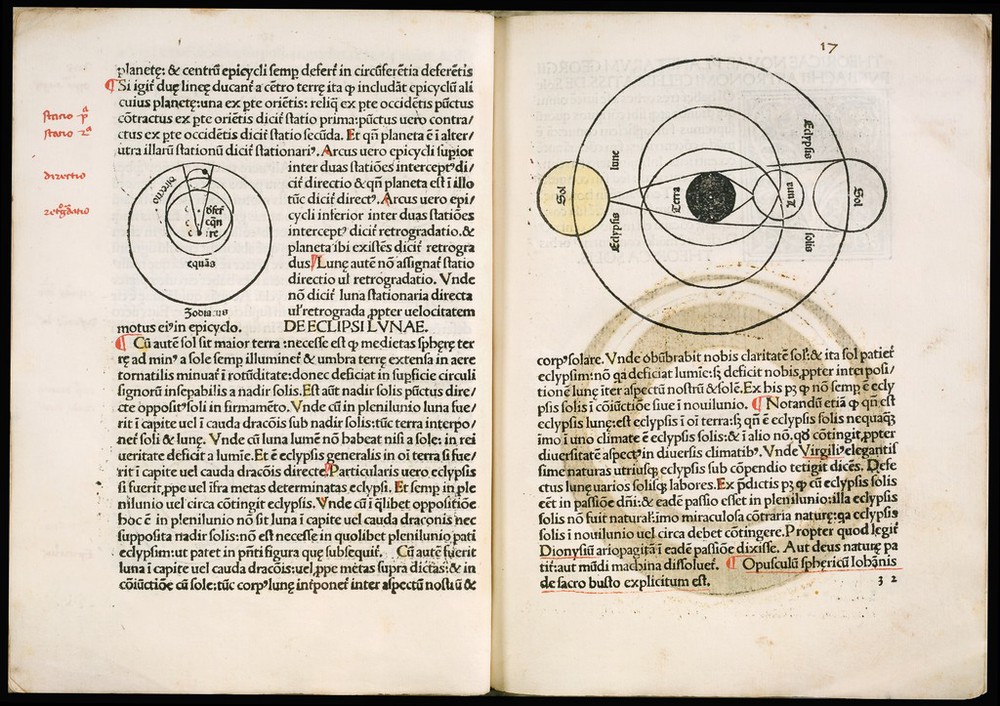 planetę: & centrū epicycli semp defert̄ in circūferētia deferētis
¶ Si igit̄ duę lineę ducant̄ a cētro terrę ita ꝙ includāt epicyclū ali
cuius planętę:una ex pte oriētis: reliq̄ ex pte occidētis pūctus
cōtractus ex pte oriētis dicit̄ statio prima:pūctus uero contra/
ctus ex pte occidētis dicit̄ statio secūda. Et qn̄ planeta ē ī alter/
utra illarū stationū dicit̄ stationariꝰ. Arcus uero epicycli supior
inter duas statiōes interceptꝰ di/
cit̄ directio & qn̄ planeta est ī illo
tūc dicit̄ directꝰ. Arcus uero epi/
cycli inferior inter duas statiōes
interceptꝰ dicit̄ retrogradatio.&
planeta ibi existēs dicit̄ retrogra
dus ¶ Lunę autē nō assignat̄ statio
directio ul retrogradatio. Vnde
nō dicit̄ luna stationaria directa
ul' retrograda ,ppter uelocitatem
motus eiꝰ in epicyclo.
statio pᵃ
statio 2ᵃ
directio
retrogdatio
directio
defer
eqn
tre
equās
Zodiacus
DE ECLIPSI LVNAE.
¶ Cū autē sol sit maior terra :necesse est ꝙ medietas spherę ter
rę ad minꝰ a sole semp illuminet̄ & umbra terrę extensa in aere
tornatilis minuat̄ ī rotūditate:donec deficiat in supficie circuli
signorū insepabilis a nadir solis. Est aūt nadir solis pūctus dire/
cte oppositꝰ soli in firmamēto. Vnde cū in plenilunio luna fue/
rit ī capite uel ī cauda dracōis sub nadir solis:tūc terra interpo/
net̄ soli & lunę. Vnde cū luna lumē nō habeat nisi a sole: in rei
ueritate deficit a lumīe.Et ē eclypsis generalis in oī terra si fue/
rit ī capite uel cauda dracōis directe. ¶ Particularis uero eclypsis
si fuerit,ppe uel īfra metas determinatas eclypsi. Et semp in ple
nilunio uel circa cōtingit eclypsis. Vnde cū ī q̄libet oppositiōe
hoc ē in plenilunio nō sit luna ī capite uel cauda draconis nec
supposita nadir solis:nō est necesse in quolibet plenilunio pati
eclypsim:ut patet in pn̄ti figura quę subsequit̄. Cū autē fuerit
luna ī capite uel cauda dracōis:uel,ppe metas supra dictas:& in
cōiūctiōe cū sole:tūc corpꝰ lunę īnterponet̄ inter aspectū nostrū &
17
Sol
Eclypsis
lune
Terra
Luna
Eclypsis
solis
Sol
corpꝰ solare. Vnde obūbrabit nobis claritatē sol':& ita sol patiet̄
eclypsim:nō qa deficiat lumīe:s; deficit nobis,ppter interposi/
tionē lunę iter aspectū nostrū & solē.Ex his p; ꝙ nō semp ē ecly
psis solis ī cōiūctiōe siue ī nouilunio. ¶ Notandū etiā ꝙ qn̄ est
eclypsis lunę:est eclypsis ī oī terra:s; qn̄ ē eclypsis solis nequaq̄;
īmo ī uno climate ē eclypsis solis:& ī alio nō.qđ cōtingit,ppter
diuersitatē aspectꝰ in diuersis climatibꝰ. Vnde Virgiliꝰ elegantis
sime naturas utriusq; eclypsis sub cōpendio tetigit dicēs. Defe
ctus lunę uarios solisq; labores.Ex p̄dictis p; ꝙ cū eclypsis solis
eēt in passiōe dn̄i:& eadē passio esset in plenilunio:illa eclypsis
solis nō fuit natural':imo miraculosa cōtraria naturę:qa eclypsis
solis ī nouilunio uel circa debet cōtingere.Propter quod legit̄
Dionysiū ariopagitā ī eadē passiōe dixisse. Aut deus naturę pa
tit̄:aut mūdi machina dissoluet̄. ¶ Opusculū sphericū Iohānis
de sacro busto explicitum est.
3 2